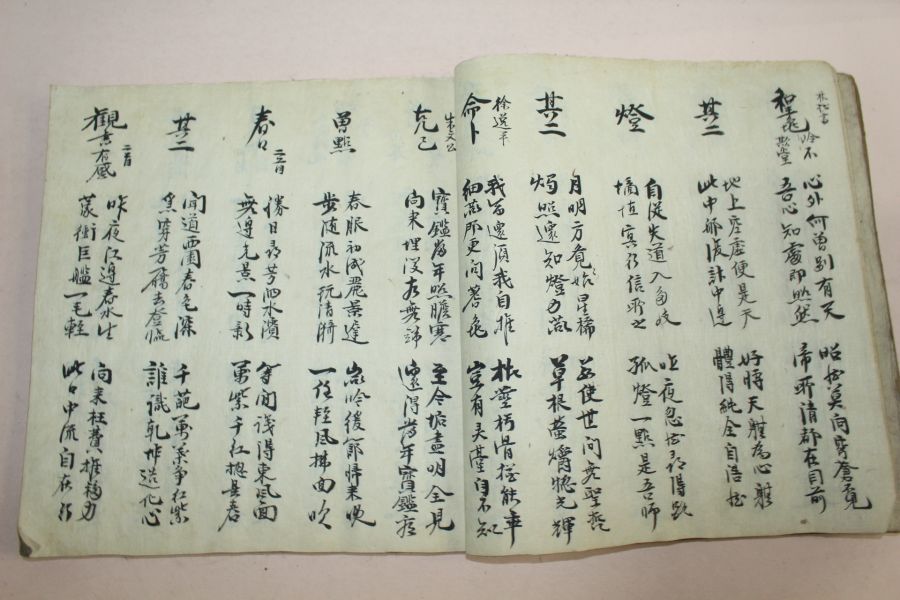 林拙齋
吟不欺堂
心外何曾別有天
吾心知處即照然
昭昭莫向穹蒼覓
帝所清都在目前
其二
地上空虛便是天
此中那復計中邊
好將天體為心體
體得純全自浩然
燈
自從失道入多岐
擿埴冥行信所之
昨夜忽然尋得路
孤燈一點是吾師
其二
月明方覺始星稀
燭照還知燈力微
若使世間無聖哲
草根螢爝惣光輝
徐逸平
命卜
我若還須我自推
細微那更問蓍龜
枯莖朽骨猶能事
豈有灵臺自不知
朱文公
克己
寶鑑當年照膽寒
向來埋沒太無端
至今垢盡明全見
還得當年寶鑑看
曾點
春服初成麗景遲
步隨流水玩清漪
微吟緩節歸來晚
一任輕風拂面吹
春日 二首
勝日尋芳泗水濱
無邊光景一時新
等閒識得東風面
萬紫千紅摠是春
其二
聞道西園春色深
急穿芒屩去登臨
千葩萬蕊爭紅紫
誰識乾坤造化心
觀書有感 二首
昨夜江邊春水生
蒙衝巨艦一毛輕
向來枉費推移力
此日中流自在行